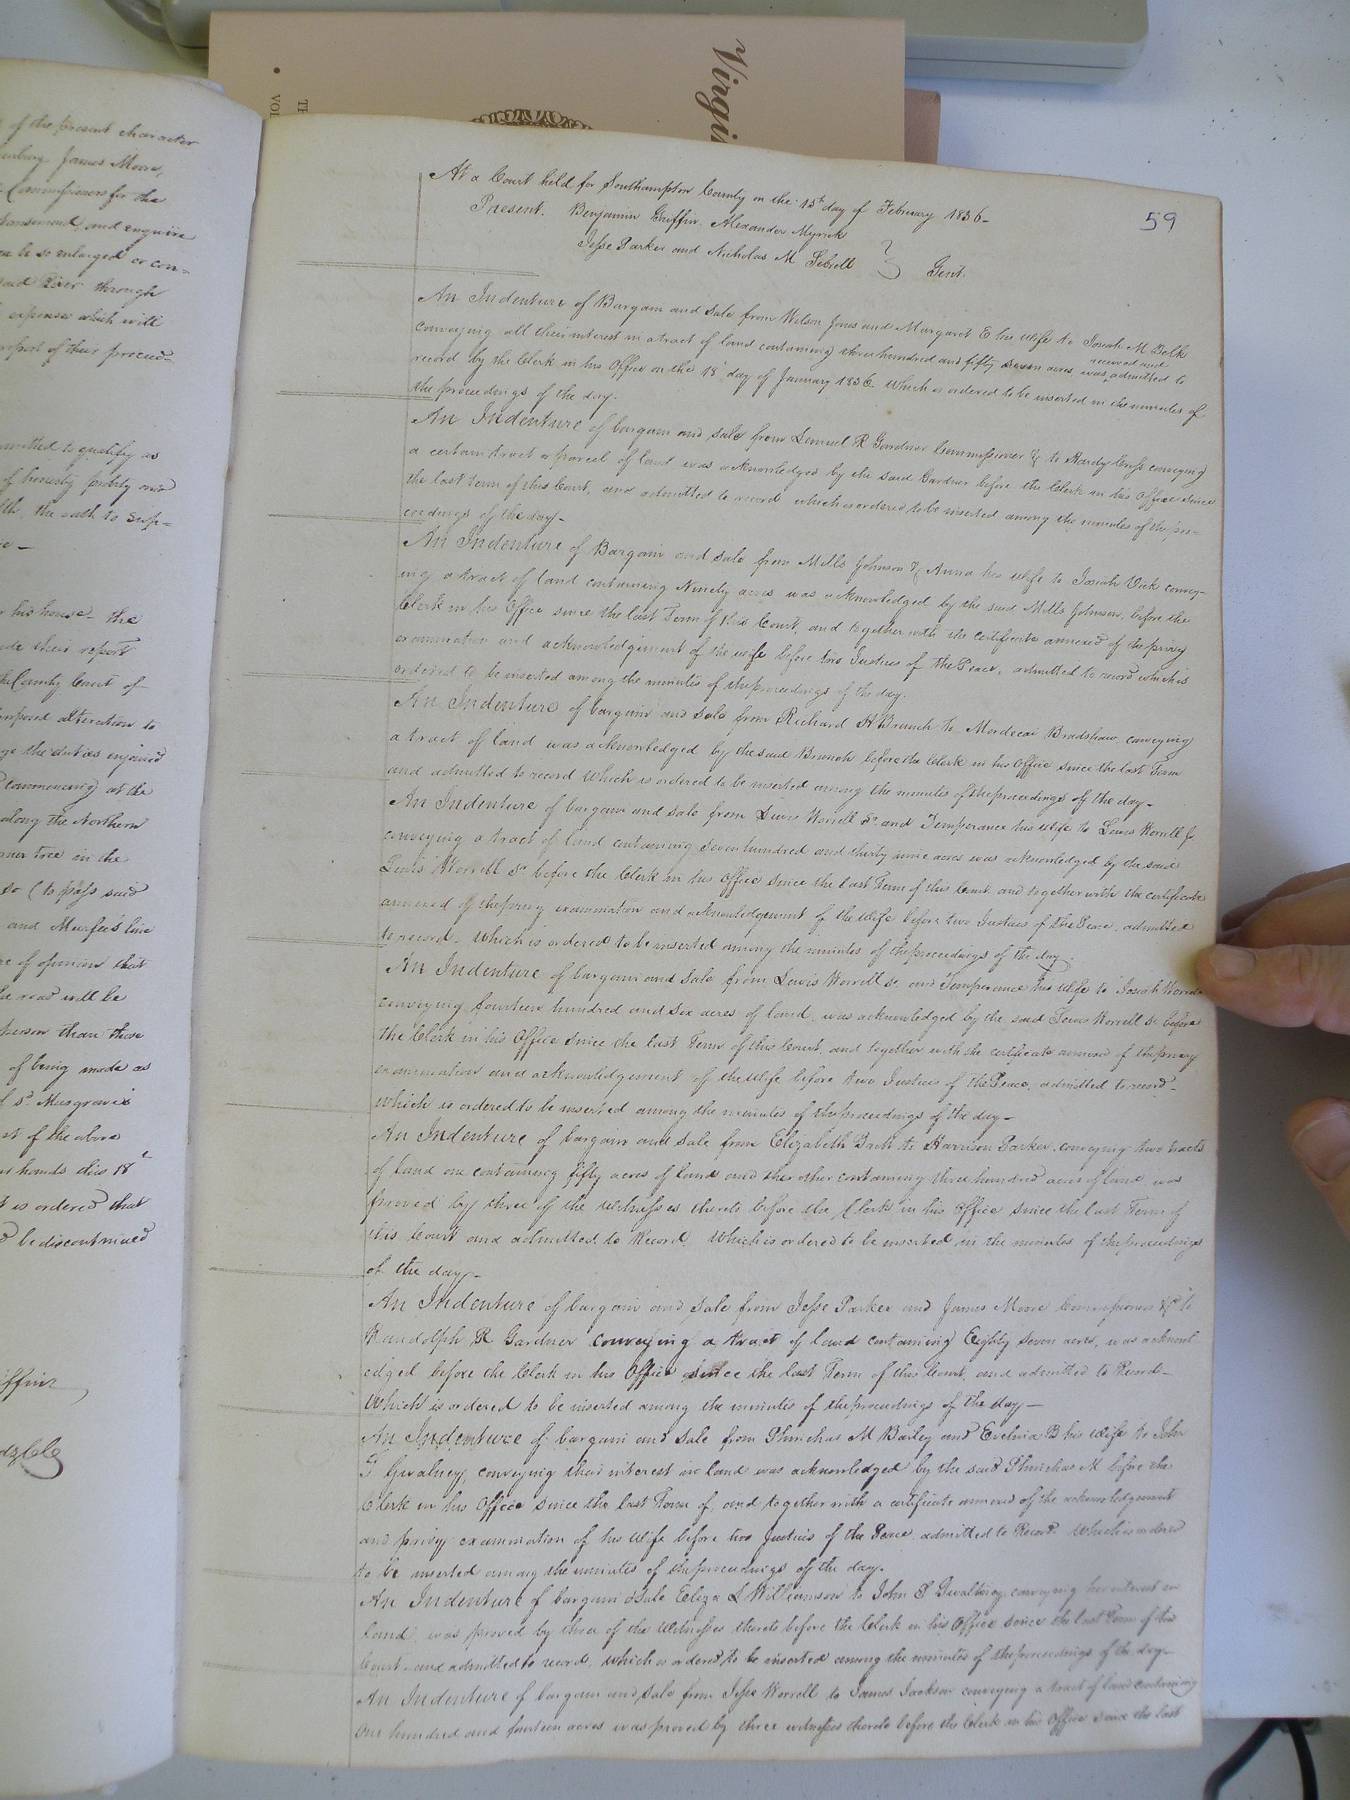 Virgi
TH
VOL
of the present character
James Moore,
Commissioners for the
and enquire
be so enlarged or con=
Road River through
expense which will
report of their proceed=
permitted to qualify as
of honesty probity and
the oath to Sup=
his house- the
made their report
the County Court of
proposed alteration to
the duties enjoined
commencing at the
along the Northern
tree in the
so (to pass said
and Murfee's line
of opinion that
road will be
person than those
of being made as
Sr Musgrave's
of the above
hands this 18t
is ordered that
be discontinued
59
At a Court held for Southampton County on the 15th day of February 1836-
Present. Benjamin Griffin, Alexander Myrick
Jesse Parker and Nicholas M Sebrell } Gent.
An Indenture of Bargain and Sale from Wilson Jones and Margaret E his wife to Josiah M Belk
conveying all their interest in a tract of land containing three hundred and fifty seven acres, was received and admitted to
record by the Clerk in his Office on the 18 day of January 1836 which is ordered to be inserted in the minutes of
the proceedings of the day.
An Indenture of bargain and sale from Lemuel R Gardner Commissioner &c to Hardy conveying
a certain tract or parcel of land was acknowledged by the said Gardner before the Clerk in his Office since
the last term of this Court, and admitted to record which is ordered to be inserted among the minutes of the pro=
ceedings of the day-
An Indenture of Bargain and sale from Mills Johnson & Anna his wife to Josiah Vick convey=
ing a tract of land containing Ninety acres was acknowledged by the said Mills Johnson, before the
Clerk in his Office since the last Term of this Court, and together with the certificate annexed of the privy
examination and acknowledgement of the wife before two Justices of the Peace, admitted to record which is
ordered to be inserted among the minutes of the proceedings of the day.
An Indenture of bargain and sale from Richard H Branch to Mordecai Bradshaw conveying
a tract of land was acknowledged by the said Branch before the Clerk in his Office since the last Term
and admitted to record which is ordered to be inserted among the minutes of the proceedings of the day-
An Indenture of bargain and sale from Lewis Worrell Sr. and Temperance his wife to Lewis Worrell Jr
conveying a tract of land containing seven hundred and thirty nine acres was acknowledged by the said
Lewis Worrell Sr before the Clerk in his Office since the last Term of this Court and together with the certificate
annexed of the privy examination and acknowledgement of the wife before two Justices of the Peace, admitted
to record. Which is ordered to be inserted among the minutes of the proceedings of the day.
An Indenture of bargain and sale from Lewis Worrell Sr. and Temperance his wife to Josiah Worrell
conveying fourteen hundred and six acres of land, was acknowledged by the said Lewis Worrell Sr before
the Clerk in his Office since the last Term of this Court, and together with the certificate annexed of the privy
examination and acknowledgement of the wife before two Justices of the Peace, admitted to record-
which is ordered to be inserted among the minutes of the proceedings of the day-
An Indenture of bargain and sale from Elizabeth Britt to Harrison Parker, conveying two tracts
of land one containing fifty acres of land and the other containing three hundred acres of land was
proved by three of the witnesses thereto before the Clerk in his Office since the last Term of
this Court and admitted to Record. Which is ordered to be inserted in the minutes of the proceedings
of the day-
An Indenture of bargain and sale from Jesse Parker and James Moore Commissioners &c to
Randolph R Gardner conveying a tract of land containing Eighty Seven acres, was acknowl
edged before the Clerk in his Office since the last Term of this Court, and admitted to Record-
Which is ordered to be inserted among the minutes of the proceedings of the day-
An Indenture of bargain and sale from Phinehas M Bailey and Evelina B his wife to John
T Gwaltney, conveying their interest in land was acknowledged by the said Phinehas M before the
Clerk in his Office since the last Term of, and together with a certificate annexed of the acknowledgement
and privy examination of his wife before two Justices of the Peace admitted to Record. Which is ordered
to be inserted among the minutes of the proceedings of the day.
An Indenture of bargain & sale Eliza L Williamson to John T Gwaltney, conveying her interest in
land, was proved by three of the Witnesses thereto before the Clerk in his Office since the last Term of this
Court and admitted to record, which is ordered to be inserted among the minutes of the proceedings of the day-
An Indenture of bargain and sale from Jesse Worrell to James Jackson conveying a tract of land containing
One hundred and fourteen acres was proved by three witnesses thereto before the Clerk in his Office since the last